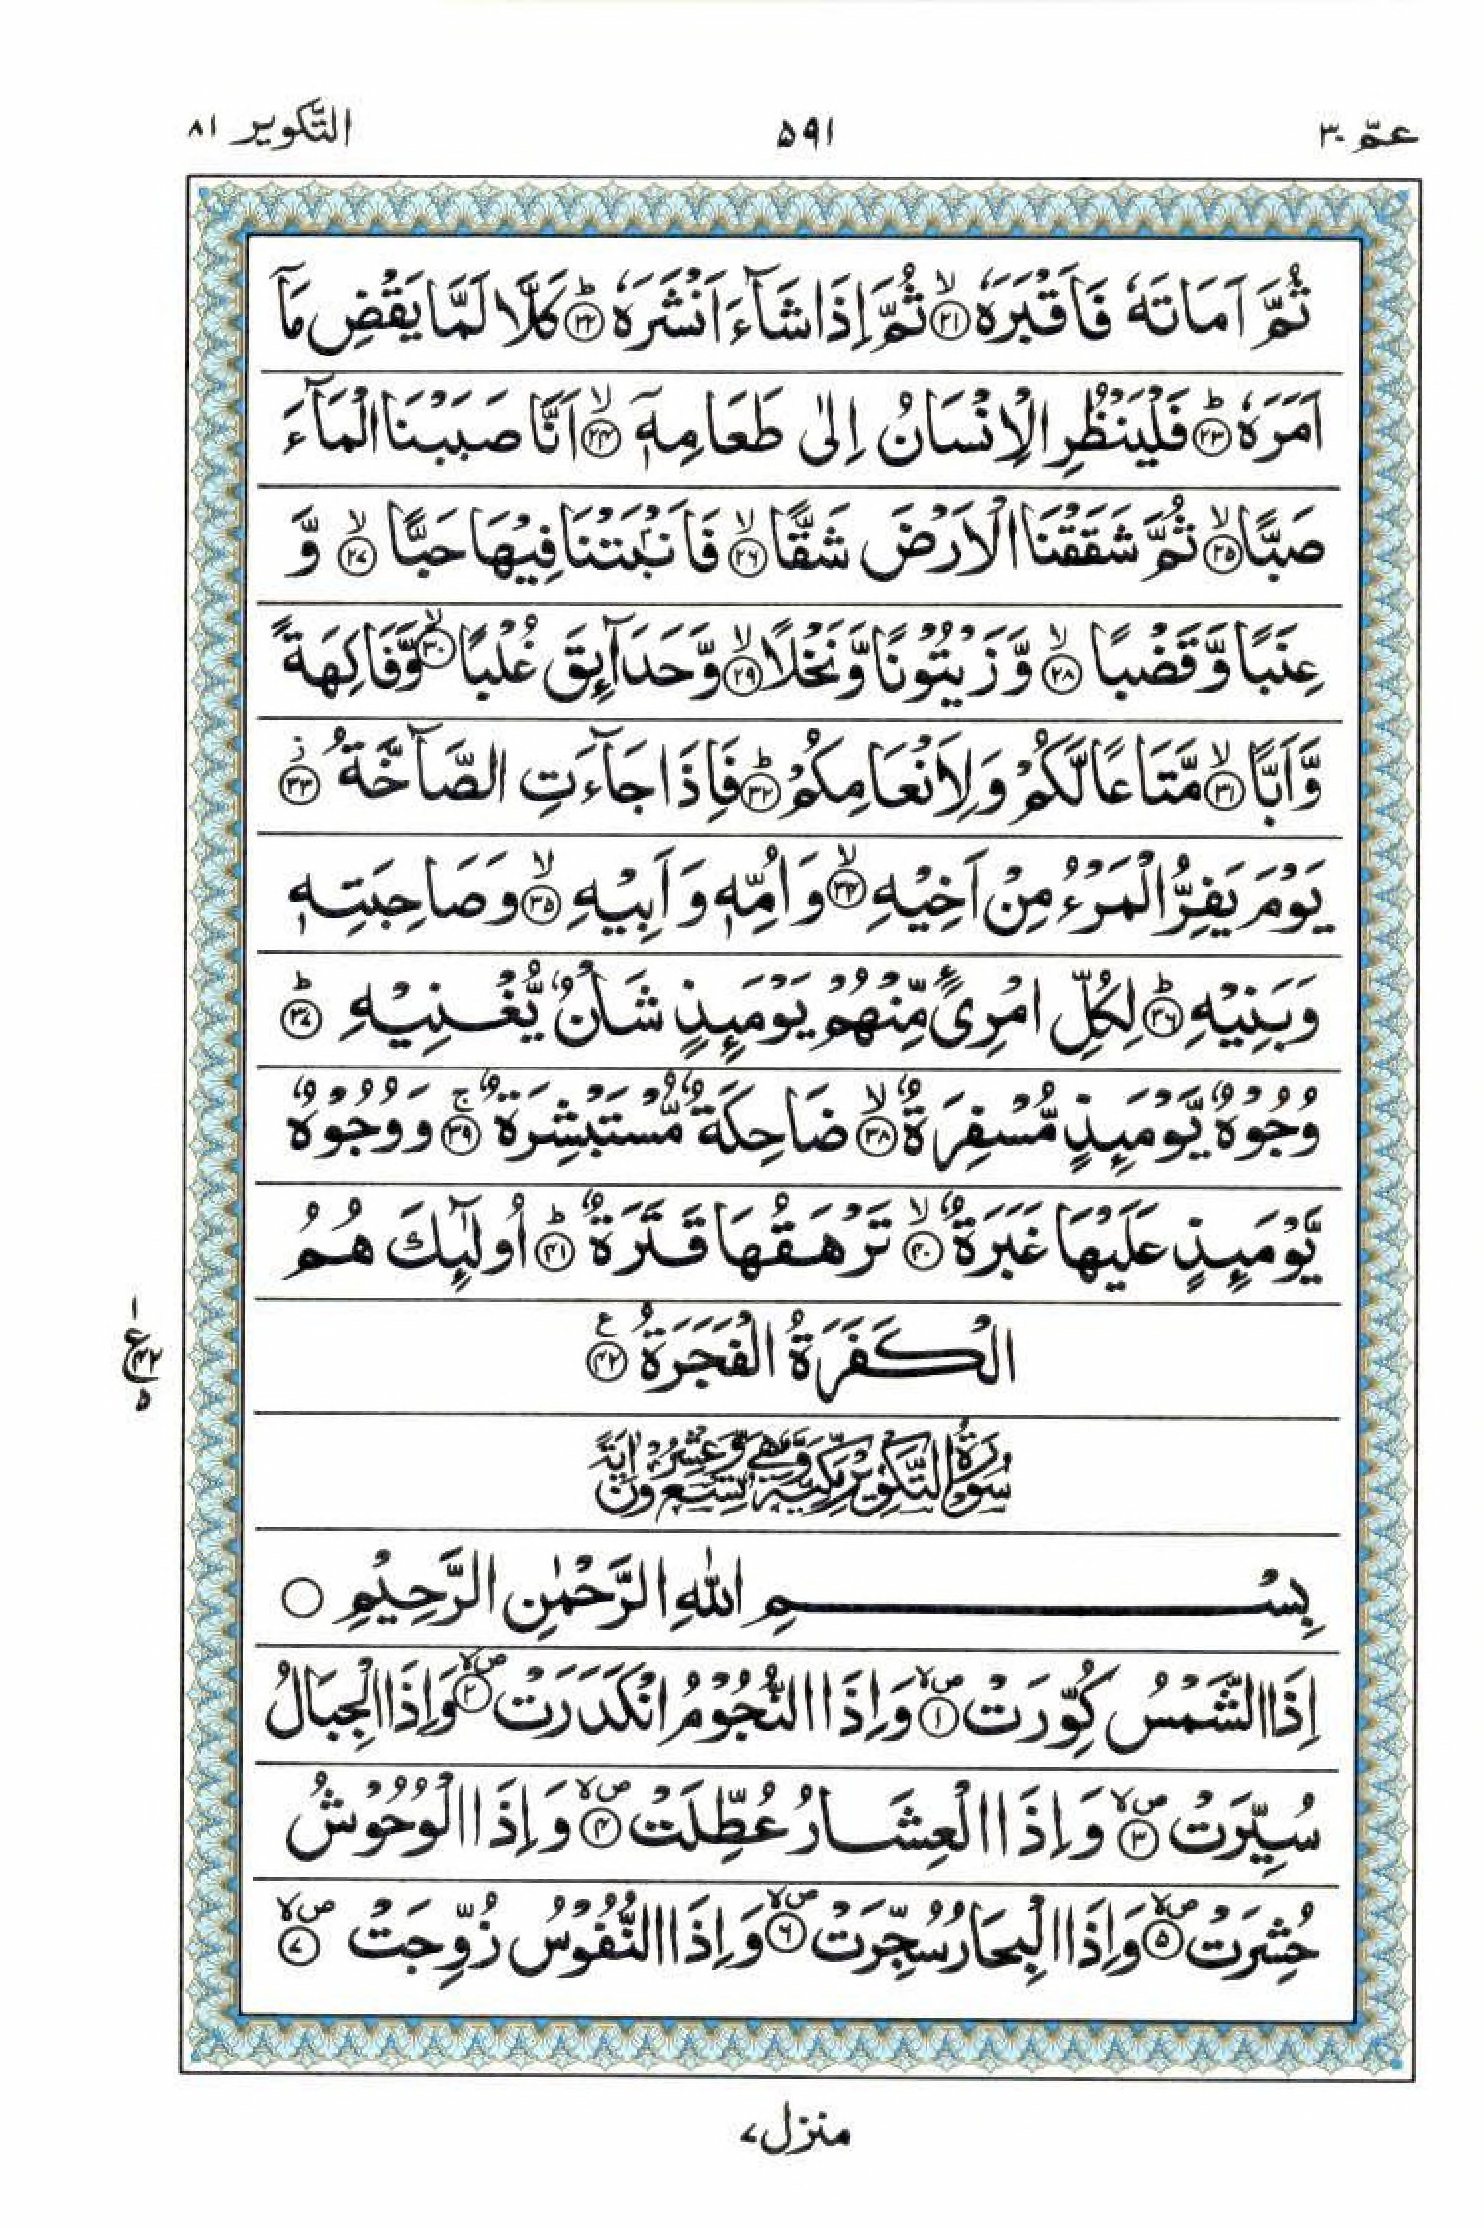 عمّ ٣٠ ٥٩١ التّكوير ٨١
ثُمَّ اَمَاتَهٗ فَاَقْبَرَهٗ ۙ﴿۲۱﴾ ثُمَّ اِذَا شَآءَ اَنْشَرَهٗ ؕ﴿۲۲﴾ كَلَّا لَمَّا يَقْضِ مَاۤ
اَمَرَهٗ ؕ﴿۲۳﴾ فَلْيَنْظُرِ الْاِنْسَانُ اِلٰى طَعَامِهٖۤ ۙ﴿۲۴﴾ اَنَّا صَبَبْنَا الْمَآءَ
صَبًّا ۙ﴿۲۵﴾ ثُمَّ شَقَقْنَا الْاَرْضَ شَقًّا ۙ﴿۲۶﴾ فَاَنْۢبَتْنَا فِيْهَا حَبًّا ۙ﴿۲۷﴾ وَّ
عِنَبًا وَّقَضْبًا ۙ﴿۲۸﴾ وَّزَيْتُوْنًا وَّنَخْلًا ۙ﴿۲۹﴾ وَّحَدَآئِقَ غُلْبًا ۙ﴿۳۰﴾ وَّفَاكِهَةً
وَّاَبًّا ۙ﴿۳۱﴾ مَّتَاعًا لَّكُمْ وَلِاَنْعَامِكُمْ ؕ﴿۳۲﴾ فَاِذَا جَآءَتِ الصَّآخَّةُ ز﴿۳۳﴾
يَوْمَ يَفِرُّ الْمَرْءُ مِنْ اَخِيْهِ ۙ﴿۳۴﴾ وَاُمِّهٖ وَاَبِيْهِ ۙ﴿۳۵﴾ وَصَاحِبَتِهٖ
وَبَنِيْهِ ؕ﴿۳۶﴾ لِكُلِّ امْرِئٍ مِّنْهُمْ يَوْمَئِذٍ شَاْنٌ يُّغْنِيْهِ ؕ﴿۳۷﴾
وُجُوْهٌ يَّوْمَئِذٍ مُّسْفِرَةٌ ۙ﴿۳۸﴾ ضَاحِكَةٌ مُّسْتَبْشِرَةٌ ۚ﴿۳۹﴾ وَوُجُوْهٌ
يَّوْمَئِذٍ عَلَيْهَا غَبَرَةٌ ۙ﴿۴۰﴾ تَرْهَقُهَا قَتَرَةٌ ؕ﴿۴۱﴾ اُولٰٓئِكَ هُمُ
الْكَفَرَةُ الْفَجَرَةُ ع﴿۴۲﴾
١ ع ۴۲ ۵
سُوْرَةُ التَّكْوِيْرِ مَكِّيَّةٌ وَّهِيَ تِسْعٌ وَّعِشْرُوْنَ اٰيَةً
بِسْمِ اللّٰهِ الرَّحْمٰنِ الرَّحِيْمِ ○
اِذَا الشَّمْسُ كُوِّرَتْ ۙص﴿۱﴾ وَاِذَا النُّجُوْمُ انْكَدَرَتْ ۙص﴿۲﴾ وَاِذَا الْجِبَالُ
سُيِّرَتْ ۙص﴿۳﴾ وَاِذَا الْعِشَارُ عُطِّلَتْ ۙص﴿۴﴾ وَاِذَا الْوُحُوْشُ
حُشِرَتْ ۙص﴿۵﴾ وَاِذَا الْبِحَارُ سُجِّرَتْ ۙص﴿۶﴾ وَاِذَا النُّفُوْسُ زُوِّجَتْ ۙص﴿۷﴾
منزل ۷